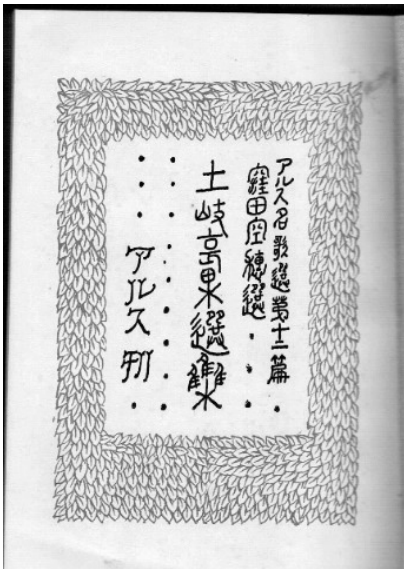 アルス名歌選第十二篇
窪田空穂選
土岐哀果選集
アルス刊